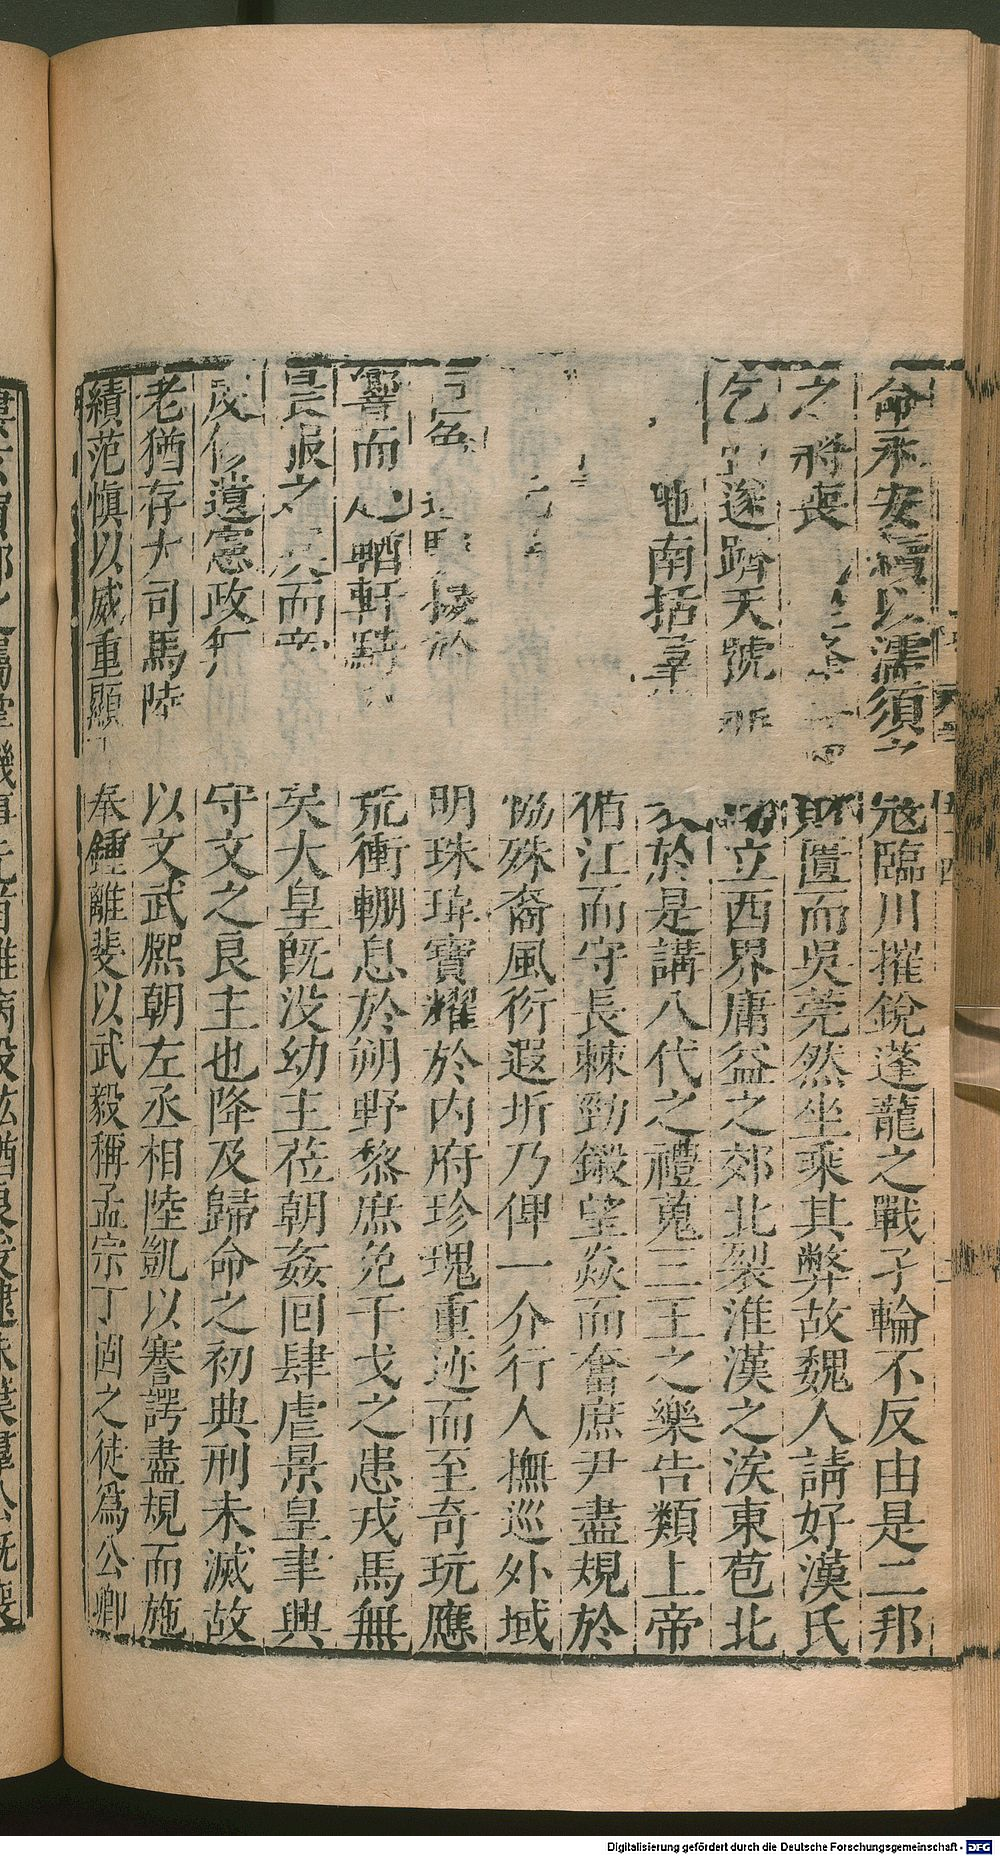 命永安續以濡須之寇臨川摧銳蓬蘢之戰孑輪不反由是二邦
之將喪財匱而吳莞然坐乘其弊故魏人請好漢氏
乞盟遂躋天號立西界庸益之郊北裂淮漢之涘東苞北
地南括羣於是講八代之禮蒐三王之樂告類上帝
循江而守長棘勁鎩望猋而奮庶尹盡規於
協殊裔風衍遐圻乃俾一介行人撫巡外域
明珠瑋寶耀於内府珍瑰重迹而至奇玩應
響而輶軒騁荒衝輣息於朔野黎庶免干戈之患戎馬無
晨服之虞而帝矣大皇旣没幼主莅朝姦回肆虐景皇聿興
遺憲政無守文之良主也降及歸命之初典刑未滅故
老猶存大司馬陸以文武熙朝左丞相陸凱以謇諤盡規而施
績范慎以威重顯丁奉鍾離斐以武毅稱孟宗丁固之徒爲公卿
Digitalisierung gefördert durch die Deutsche Forschungsgemeinschaft - DFG